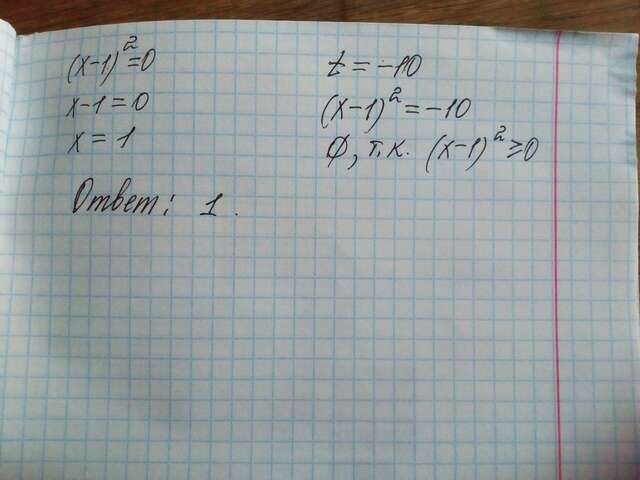 (x-1)²=0
x-1=0
x=1
t=-10
(x-1)²=-10
Ø, т.к. (x-1)²≥0
Ответ: 1.